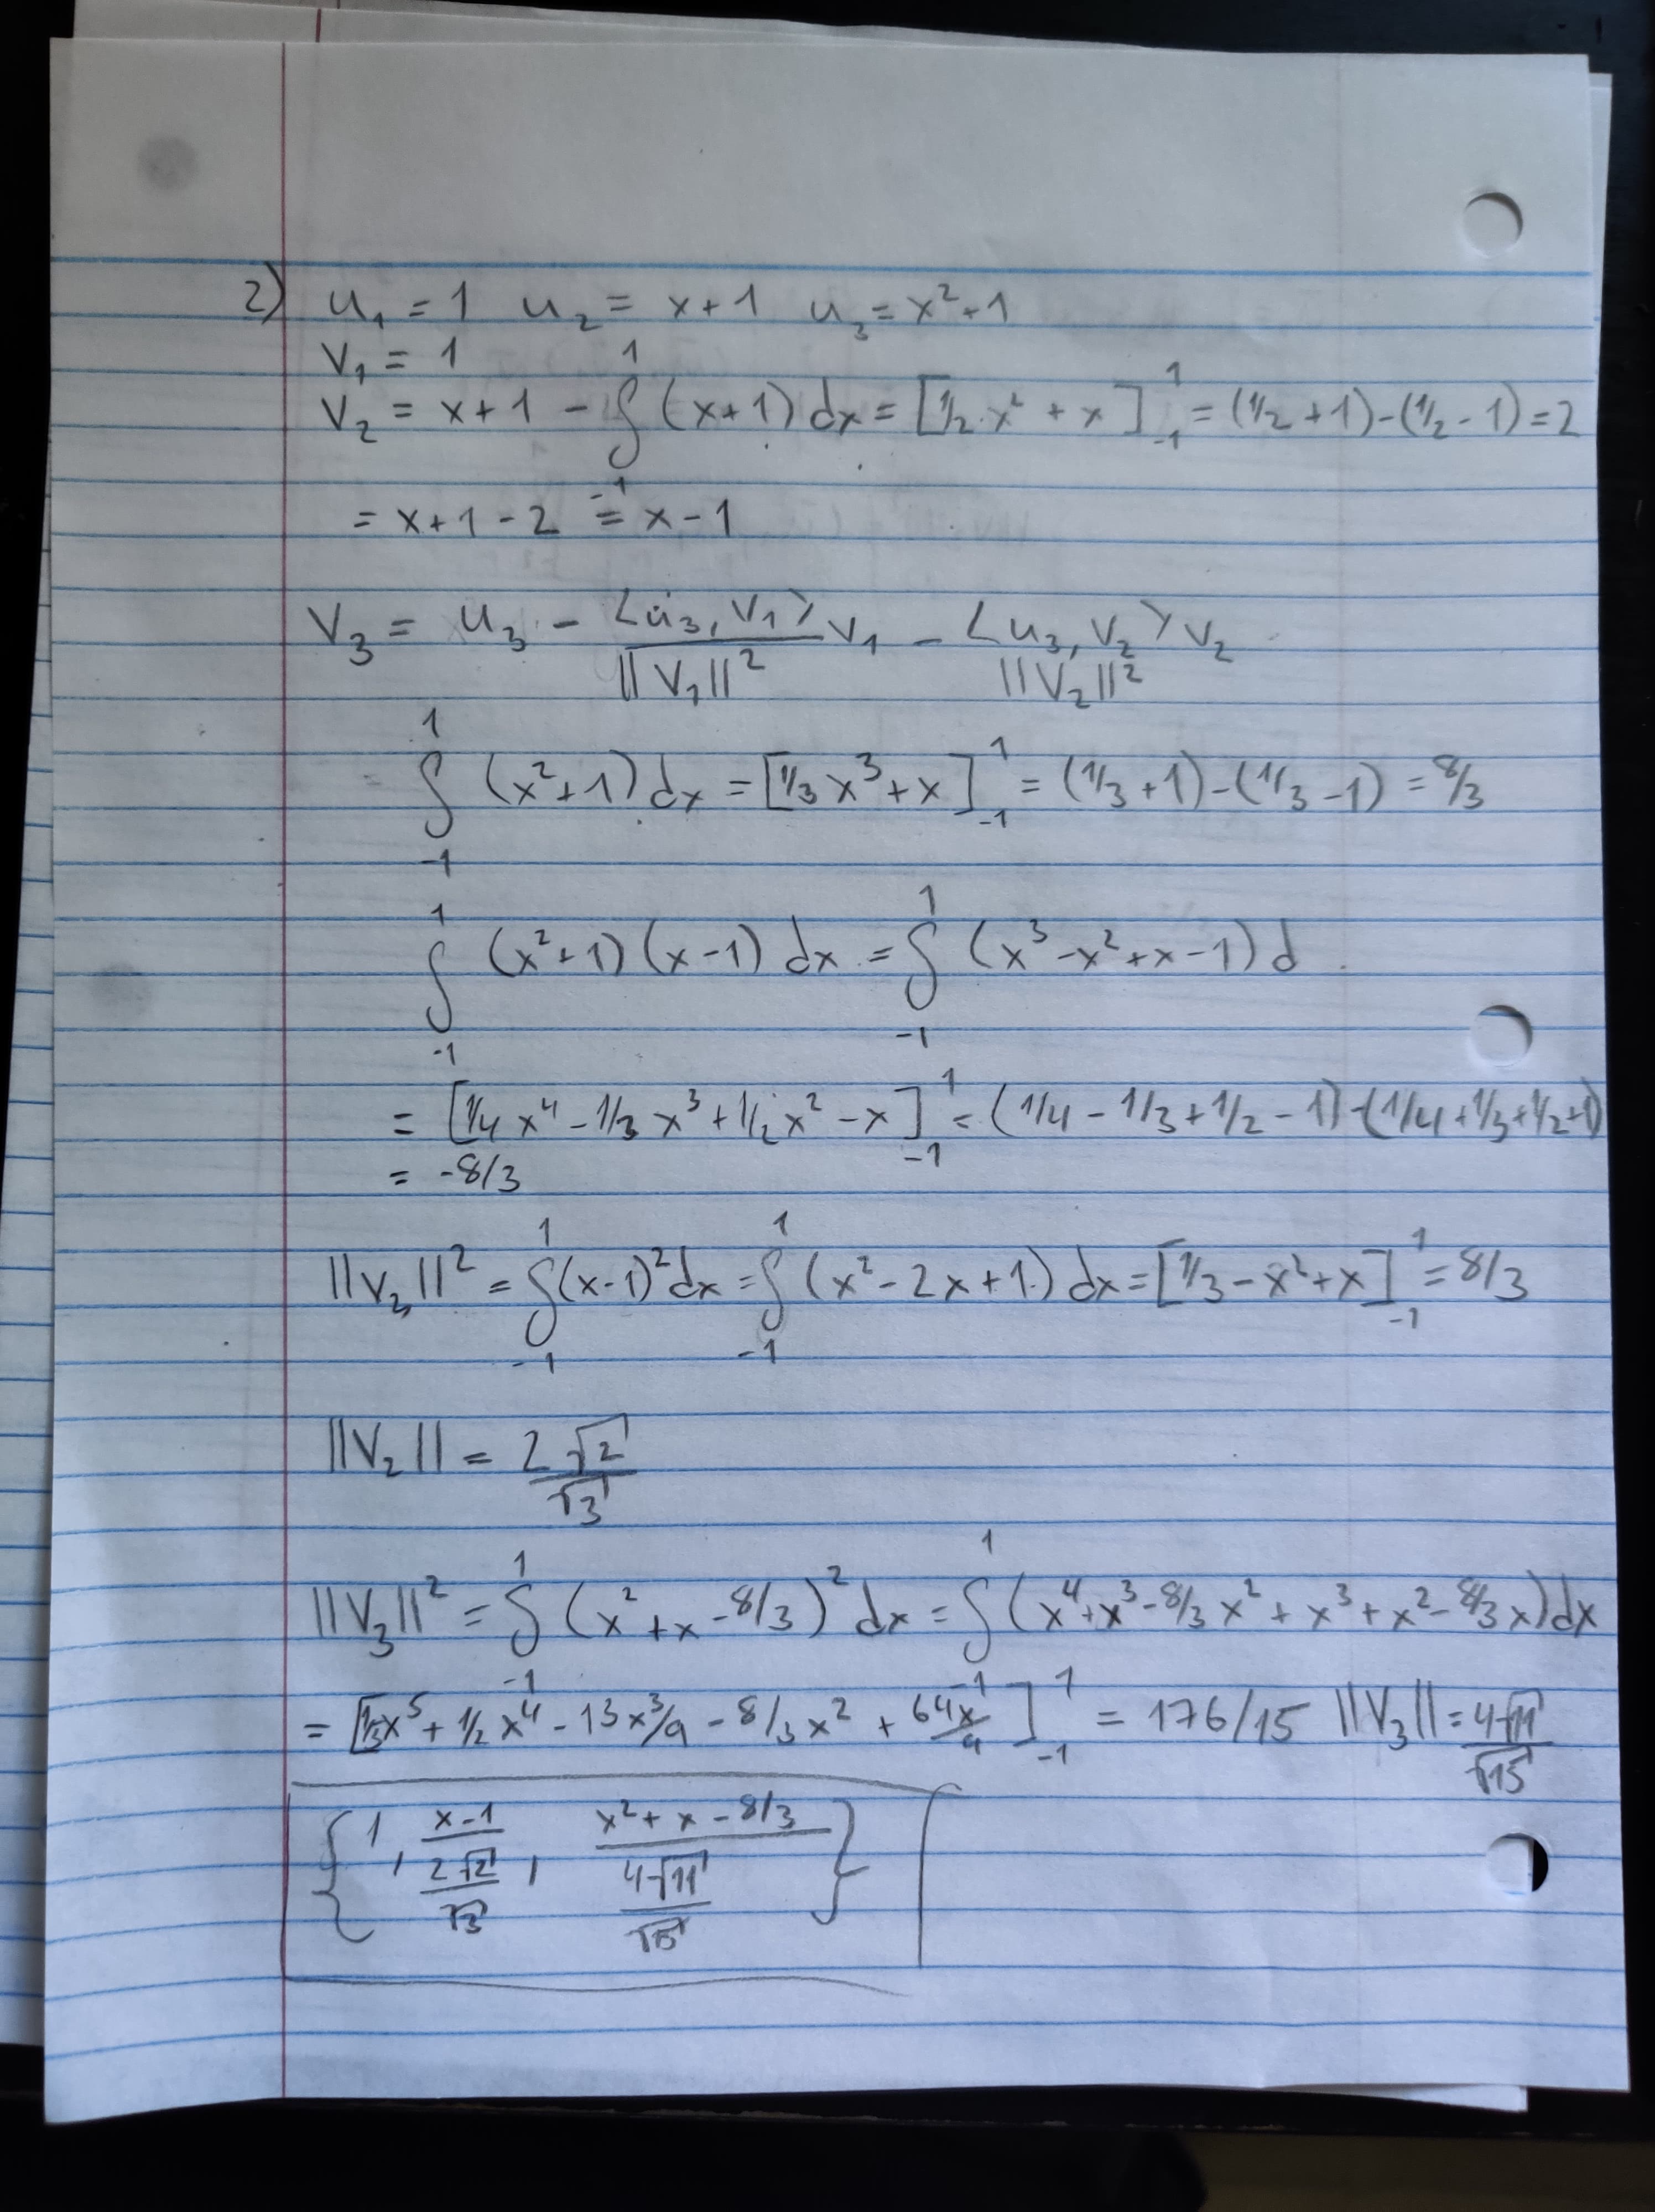 2) u₁ = 1 u₂ = x+1 u₃ = x²+1
v₁ = 1
v₂ = x+1 - ∫₋₁¹ (x+1) dx = [1/2 x² + x]₋₁¹ = (1/2 + 1) - (1/2 - 1) = 2
= x+1-2 = x-1
v₃ = u₃ - <u₃, v₁>/||v₁||² v₁ - <u₃, v₂>/||v₂||² v₂
∫₋₁¹ (x²+1) dx = [1/3 x³ + x]₋₁¹ = (1/3 + 1) - (1/3 - 1) = 8/3
∫₋₁¹ (x²+1)(x-1) dx = ∫₋₁¹ (x³ - x² + x - 1) d
= [1/4 x⁴ - 1/3 x³ + 1/2 x² - x]₋₁¹ = (1/4 - 1/3 + 1/2 - 1) - (1/4 + 1/3 + 1/2 + 1)
= -8/3
||v₂||² = ∫₋₁¹ (x-1)² dx = ∫₋₁¹ (x² - 2x + 1) dx = [1/3 - x² + x]₋₁¹ = 8/3
||v₂|| = 2√2/√3
||v₃||² = ∫₋₁¹ (x² + x - 8/3)² dx = ∫₋₁¹ (x⁴ + x³ - 8/3 x² + x³ + x² - 8/3 x) dx
= [1/5 x⁵ + 1/2 x⁴ - 13x³/9 - 8/3 x² + 64x/9]₋₁¹ = 176/15 ||v₃|| = 4√11/√15
{1, (x-1)/(2√2/√3), (x² + x - 8/3)/(4√11/√15)}